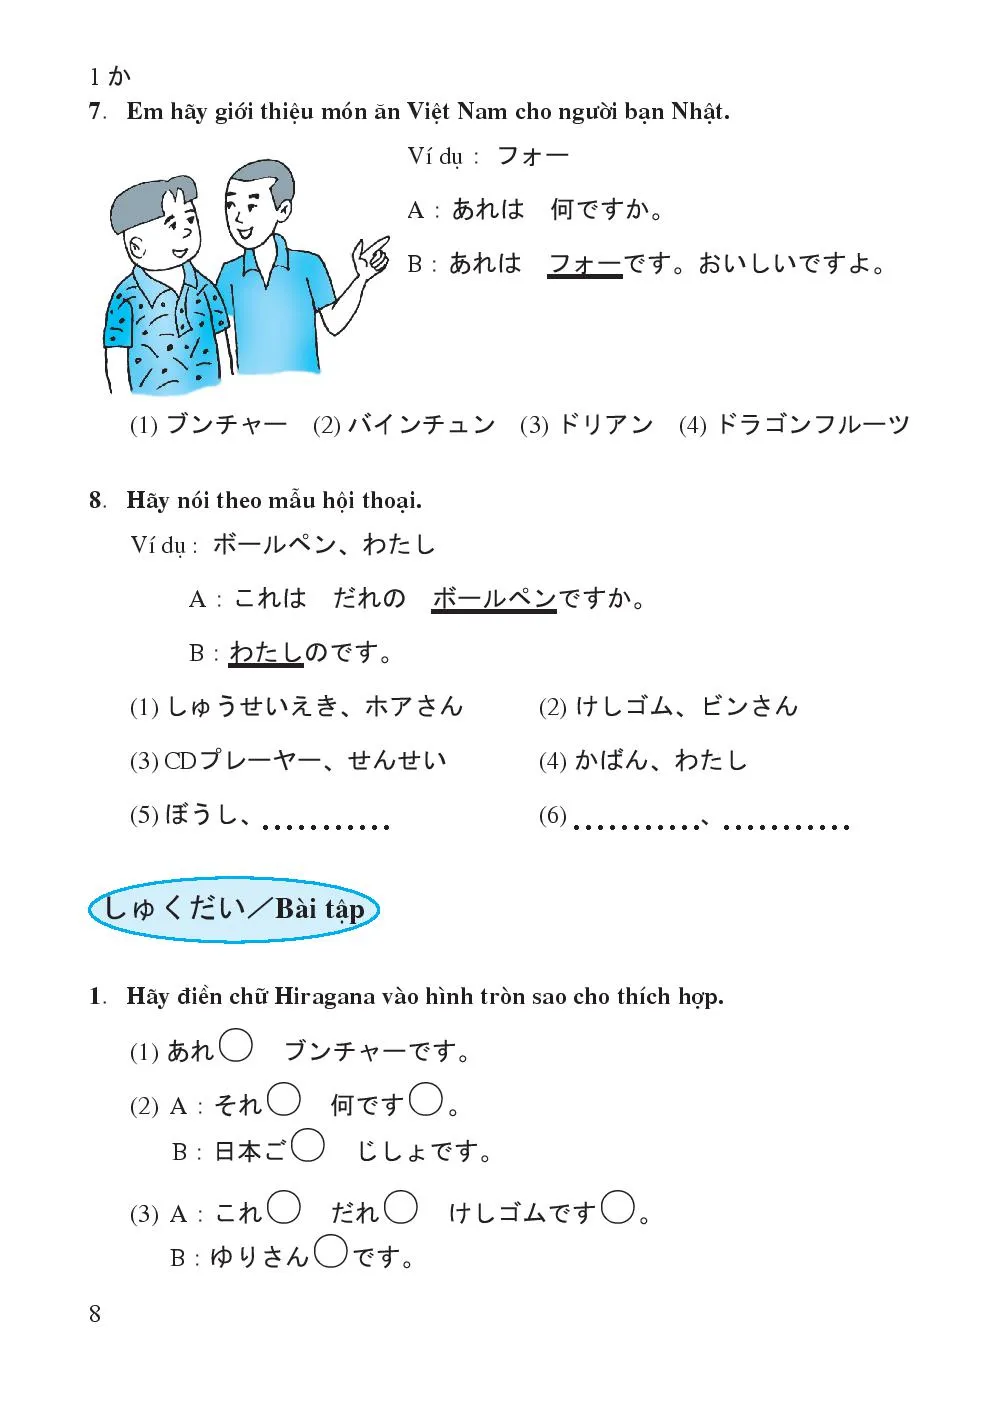 1 か
7. Em hãy giới thiệu món ăn Việt Nam cho người bạn Nhật.
Ví dụ : フォー
A : あれは　何ですか。
B : あれは　フォーです。おいしいですよ。
(1) ブンチャー (2) バインチュン (3) ドリアン (4) ドラゴンフルーツ
8. Hãy nói theo mẫu hội thoại.
Ví dụ : ボールペン、わたし
A : これは　だれの　ボールペンですか。
B : わたしのです。
(1) しゅうせいえき、ホアさん (2) けしゴム、ビンさん
(3) CDプレーヤー、せんせい (4) かばん、わたし
(5) ぼうし、........... (6) ...........、...........
しゅくだい／Bài tập
1. Hãy điền chữ Hiragana vào hình tròn sao cho thích hợp.
(1) あれ◯　ブンチャーです。
(2) A : それ◯　何です◯。
B : 日本ご◯　じしょです。
(3) A : これ◯　だれ◯　けしゴムです◯。
B : ゆりさん◯です。
8